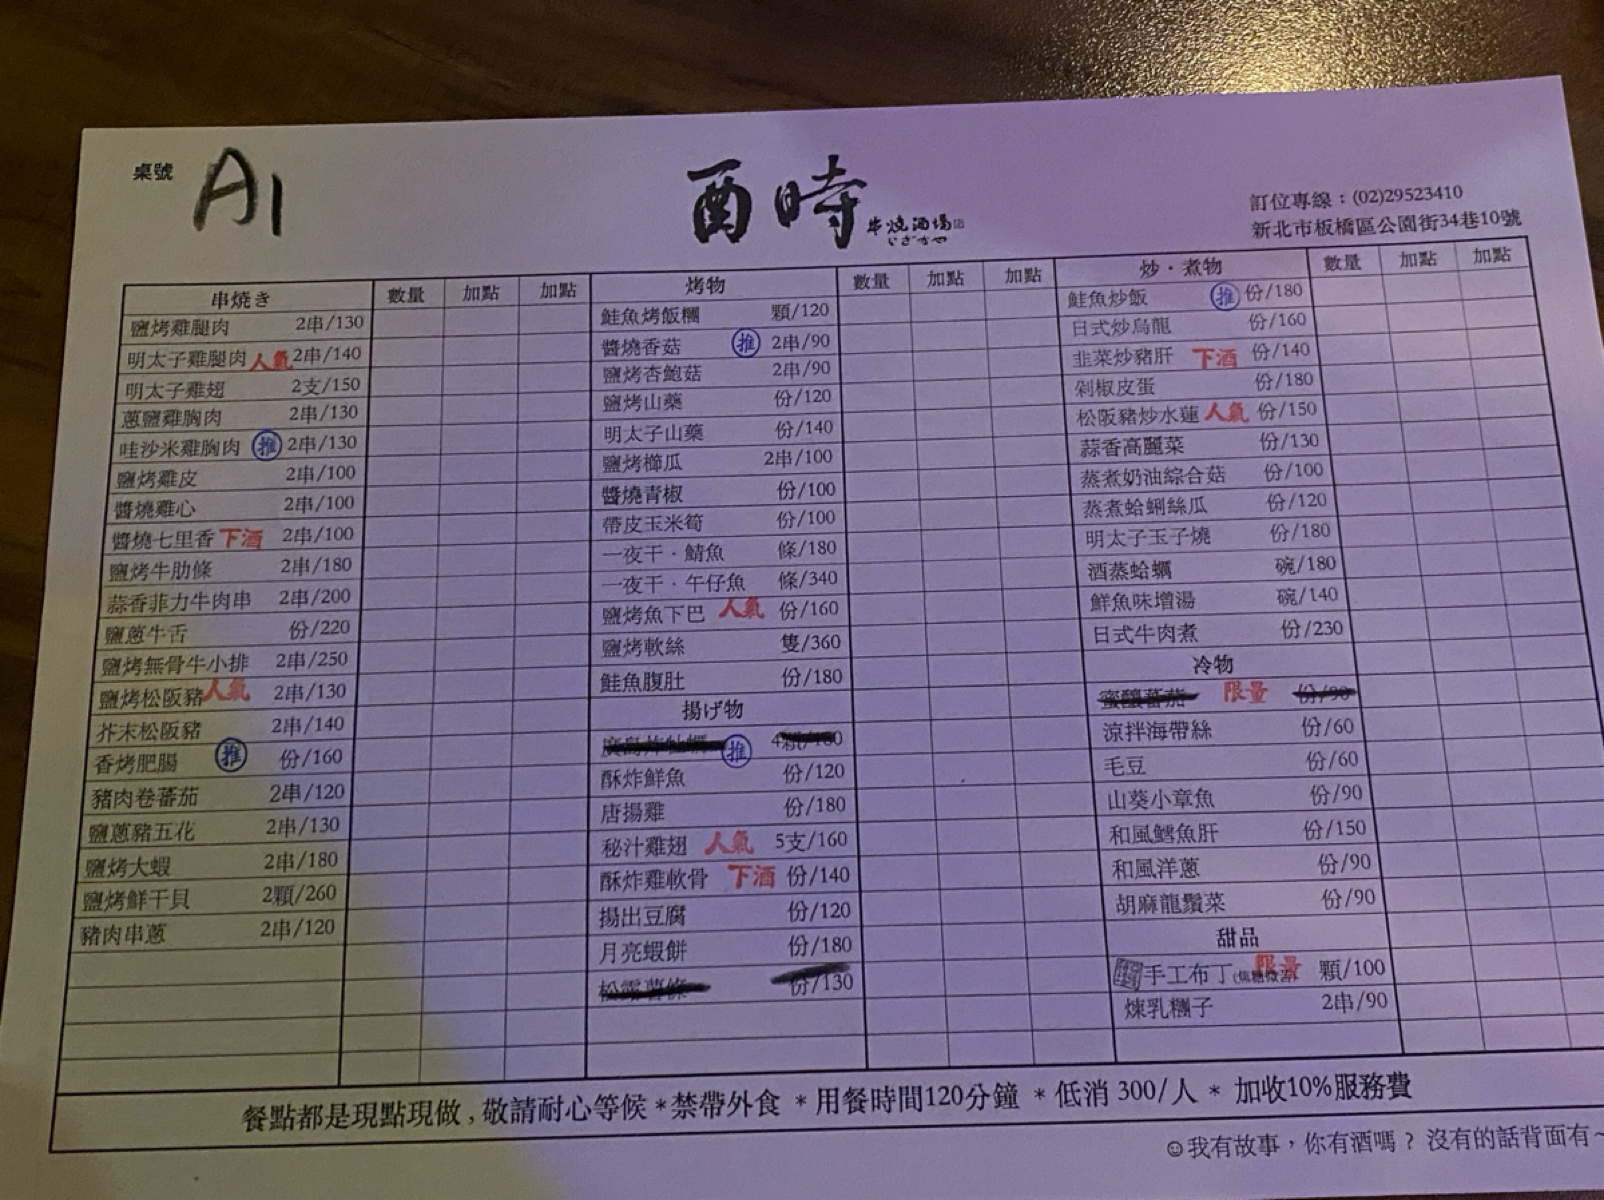 桌號 A1
酉時 串燒酒場
いざかや
訂位專線：(02)29523410
新北市板橋區公園街34巷10號
串燒き 數量 加點 加點
鹽烤雞腿肉 2串/130
明太子雞腿肉 人氣 2串/140
明太子雞翅 2支/150
蔥鹽雞胸肉 2串/130
哇沙米雞胸肉 推 2串/130
鹽烤雞皮 2串/100
醬燒雞心 2串/100
醬燒七里香 下酒 2串/100
鹽烤牛肋條 2串/180
蒜香菲力牛肉串 2串/200
鹽蔥牛舌 份/220
鹽烤無骨牛小排 2串/250
鹽烤松阪豬 人氣 2串/130
芥末松阪豬 2串/140
香烤肥腸 推 份/160
豬肉卷蕃茄 2串/120
鹽蔥豬五花 2串/130
鹽烤大蝦 2串/180
鹽烤鮮干貝 2顆/260
豬肉串蔥 2串/120
烤物 數量 加點 加點
鮭魚烤飯糰 顆/120
醬燒香菇 推 2串/90
鹽烤杏鮑菇 2串/90
鹽烤山藥 份/120
明太子山藥 份/140
鹽烤櫛瓜 2串/100
醬燒青椒 份/100
帶皮玉米筍 份/100
一夜干·鯖魚 條/180
一夜干·午仔魚 條/340
鹽烤魚下巴 人氣 份/160
鹽烤軟絲 隻/360
鮭魚腹肚 份/180
揚げ物
廣島炸牡蠣 推 4顆/180
酥炸鮮魚 份/120
唐揚雞 份/180
秘汁雞翅 人氣 5支/160
酥炸雞軟骨 下酒 份/140
揚出豆腐 份/120
月亮蝦餅 份/180
松露薯條 份/130
炒·煮物 數量 加點 加點
鮭魚炒飯 推 份/180
日式炒烏龍 份/160
韭菜炒豬肝 下酒 份/140
剁椒皮蛋 份/180
松阪豬炒水蓮 人氣 份/150
蒜香高麗菜 份/130
蒸煮奶油綜合菇 份/100
蒸煮蛤蜊絲瓜 份/120
明太子玉子燒 份/180
酒蒸蛤蠣 碗/180
鮮魚味增湯 碗/140
日式牛肉煮 份/230
冷物
蜜釀蕃茄 限量 份/90
涼拌海帶絲 份/60
毛豆 份/60
山葵小章魚 份/90
和風鱈魚肝 份/150
和風洋蔥 份/90
胡麻龍鬚菜 份/90
甜品
手工布丁 限量 顆/100
煉乳糰子 2串/90
餐點都是現點現做，敬請耐心等候 *禁帶外食 *用餐時間120分鐘 *低消 300/人 * 加收10%服務費
☺我有故事，你有酒嗎？ 沒有的話背面有~